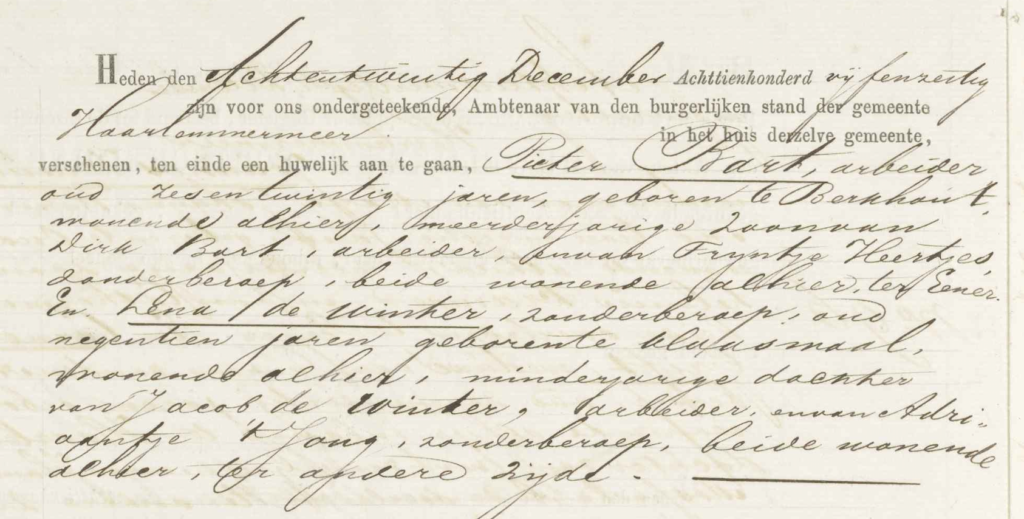 Heden den Achtentwintig December Achttienhonderd vijfenzestig
zijn voor ons ondergeteekende, Ambtenaar van den burgerlijken stand der gemeente
Haarlemmermeer in het huis derzelve gemeente,
verschenen, ten einde een huwelijk aan te gaan, Pieter Bart, arbeider
oud zesentwintig jaren, geboren te Berkhout,
wonende alhier, meerderjarige zoon van
Dirk Bart, arbeider, en van Tryntje Heertjes,
zonder beroep, beide wonende alhier, ter Eener.
En Lena de Winter, zonder beroep, oud
negentien jaren geboren te Maasmaal,
wonende alhier, minderjarige dochter
van Jacob de Winter, arbeider, en van Adri-
aantje 't Jong, zonder beroep, beide wonende
alhier, ter andere zijde.